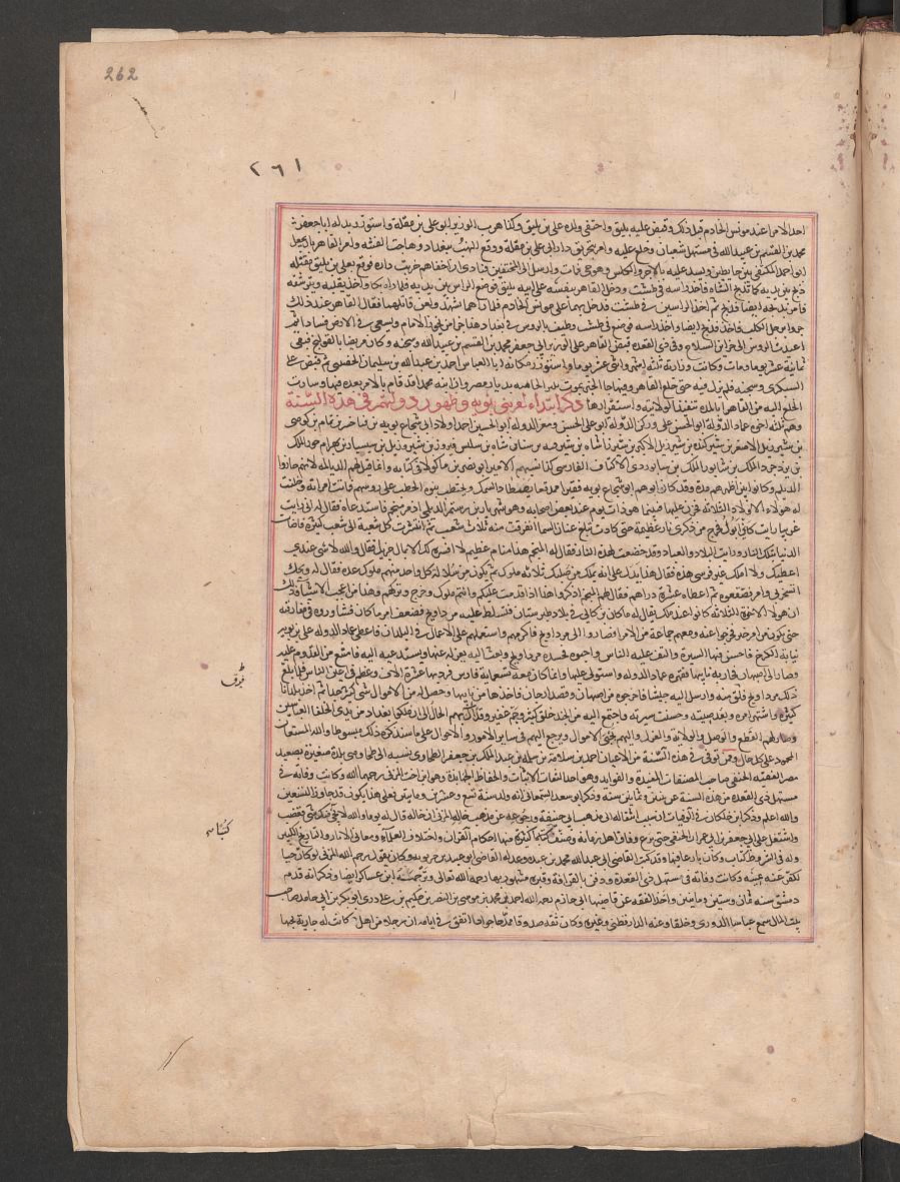 262
٢٦١
احد الامراء عند مونس الخادم قبل ذلك وقبض عليه بليق واختفى ولده على بن بليق وكذا هرب الوزير ابو على بن مقلة واستوزر بدله ابا جعفر
محمد بن القسم بن عبيد الله فى مستهل شعبان وخلع عليه وامر بتحريق دار ابى على بن مقلة ووقع النهب ببغداد وهاجت الفتنة وامر القاهر بان يجعل
ابو احمد المكتفى بين حايطين ويسد عليه بالاجر والكلس وهو حى فمات وارسل الى المختفين فنادى ان من اخفاهم خربت داره فوقع بعلى بن بليق فقتله
ذبح بين يديه كما تذبح الشاة فاخذ راسه فى طشت ودخل القاهر بنفسه على ابيه بليق فوضع الراس بين يديه فلما راه بكا واخذ يقبله ويترشفه
فامر بذبحه ايضا فذبح ثم اخذ الراسين فى طشت فدخل بهما على مونس الخادم فلما راهما تشهد ولعن قاتلهما فقال القاهر عند ذلك
جروا برجل الكلب فاخذ فذبح ايضا واخذ راسه فوضع فى طشت وطيف بالروس فى بغداد هذا جزا من يخون الامام ويسعى فى الارض فسادا ثم
اعيدت الروس الى خزاين السلاح وفى ذى القعدة قبض القاهر على الوزير ابى جعفر محمد بن القسم بن عبيد الله وسجنه وكان مريضا بالقولنج فبقى
ثمانية عشر يوما ومات وكانت وزارته ثلثة اشهر واثنى عشر يوما واستوزر مكانه ابا العباس احمد بن عبد الله بن سليمان الخصيبى ثم قبض على
السبكرى وسجنه فلم يزل فيه حتى خلع القاهر وفيها جا الخبر بموت بدار مصر وان ابنه محمد قد قام بالامر بعده فيها وسارت
الخلع اليه من القاهر بالله تنفيذا لولايته واستقرارها ذكر ابتداء امر بنى بويه وظهور دولتهم فى هذه السنة
وهم ثلثة اخوة عماد الدولة ابو الحسن على وركن الدولة ابو على الحسن ومعز الدولة ابو الحسين احمد اولاد ابى شجاع بويه بن فناخسرو بن تمام بن كوهى
بن شيرزيل الاصغر بن شيركنده بن شيرزيل الاكبر بن شيران شاه بن شيرفنه بن سستان شاه بن سسن فيروز بن شيروزيل بن سيسناد بن بهرام جور الملك
بن يزدجرد الملك بن سابور الملك بن سابور ذى الاكتاف الفارسى كذا نسبهم الامير ابو نصر بن ماكولا فى كتابه وانما قيل لهم الديالمة لانهم جاوروا
الديلم وكانوا بين اظهرهم مدة وقد كان ابوهم ابو شجاع بويه فقيرا مدقعا يصطاد السمك ويحتطب بنوه الحطب على روسهم فماتت امراته وخلفت
له هولاء الاولاد الثلاثة فحزن عليها فبينما هو ذات يوم عند بعض اصحابه وهو شهريار بن رستم الديلمى اذ مر منجم فاستدعاه فقال له انى رايت
غريبا رايت كانى ابول فخرج من ذكرى نار عظيمة حتى كادت تبلغ عنان السما انفرقت منه ثلاث شعب ثم انتشرت كل شعبة الى شعب كثيرة فاضات
الدنيا بتلك النار ورايت البلاد والعباد وقد خضعت لهذه النار فقال له المنجم هذا منام عظيم لا افسره لك الا بمال جزيل فقال والله لا شى عندى
اعطيك ولا املك غير فرسى هذه فقال هذا يدل على انه يملك من صلبك ثلاثة ملوك ثم يكون من سلالة كل واحد منهم ملوك عدة فقال له ويحك
اتسخر بى وامر بنيه فصفعوه ثم اعطاه عشرة دراهم فقال لهم المنجم اذكروا هذا اذا قدمت عليكم وانتم ملوك وخرج وتركهم وهذا من اعجب الاشيا وذلك
ان هولا الاخوة الثلاثة كانوا عند ملك يقال له ماكان بن كالى فى بلاد طبرستان فتسلط عليه مرداويج فضعف امر ماكان فشاوروه فى مفارقته
حتى يكون من امره خير فخرجوا عنه ومعهم جماعة من الامرا فصاروا الى مرداويج فاكرمهم واستعملهم على الاعمال فى البلدان فاعطى عماد الدوله على بن بويه
نيابة الكرج فاحسن فيها السيرة والتف عليه الناس واحبوه فحسده مرداويج وبعث اليه يعزله عنها ويستدعيه اليه فامتنع من القدوم عليه
وصار الى اصبهان فحاربه نايبها فهزمه عماد الدوله واستولى عليها وانما كان معه تسعماية فارس فرد بها عشرة الاف وعظم فى اعين الناس فلما بلغ
ذلك مرداويج قلق منه وارسل اليه جيشا فاخرجوه من اصبهان وقصد ارجان فاخذها من نايبها وحصل له من الاموال شى كثير جدا ثم اخذ بلدانا
كثيرة واشتهر امره وبعد صيته وحسنت سيرته واجتمع اليه من الجند خلق كثير وجم غفير وقد آل بهم الحال الى ان ملكوا بغداد من يدى الخلفا العباسيين
وصار لهم القطع والوصل والولاية والعزل واليهم تجبى الاموال ويرجع اليهم فى ساير الامور والاحوال على ما سنذكره ذلك مبسوطا والله المستعان
المحمود على كل حال وفمن توفى فى هذه السنة من الاعيان احمد بن سلامة بن سلمة بن عبد الملك بن جعفر الطحاوى نسبة الى طحا وهى بلدة صغيرة بصعيد
مصر الفقيه الحنفى صاحب المصنفات المفيدة والفوايد وهو احد الثقات الاثبات والحفاظ الجهابذة وهو ابن اخت المزنى رحمها الله وكانت وفاته فى
مستهل ذى القعدة من هذه السنة عن ثنتين وثمانين سنه وذكر ابو سعد السمعانى انه ولد سنة تسع وعشرين ومايتين فعلى هذا يكون قد جاوز التسعين
والله اعلم وذكر ابن خلكان فى الوفيات ان سبب انتقاله الى مذهب ابى حنيفة ورجوعه عن مذهب خاله المزنى ان خاله قال له يوما والله لا يجى منك شى فغضب
واشتغل على ابى جعفر بن ابى عمران الحنفى حتى برع وفاق اهل زمانه وصنف كتبا كثيرة منها احكام القران واختلاف العلماء ومعانى الاثار والتاريخ الكبير
وله فى الشروط كتاب وكان بارعا فيها وقد كتب للقاضى ابى عبد الله محمد بن عبده وعدله القاضى ابو عبيد بن حربويه وكان يقول رحم الله المزنى لو كان حيا
لكفر عن يمينه وكانت وفاته فى مستهل ذى القعدة ودفن بالقرافة وقبره مشهور بها رحمه الله تعالى وترجمه ابن عساكر ايضا وذكر انه قدم
دمشق سنه ثمان وستين ومايتين واخذ الفقه عن قاضيها ابى حازم رحمه الله احمد بن محمد بن موسى بن النضر بن حكيم بن على ابو بكر بن ابى حامد صاحب
بيت المال سمع عباسا الدورى وخلقا وعنه الدارقطنى وغيره وكان ثقة صدوقا جوادا ممدحا اتفق فى ايامه ان رجلا من اهل كانت له جارية يحبها